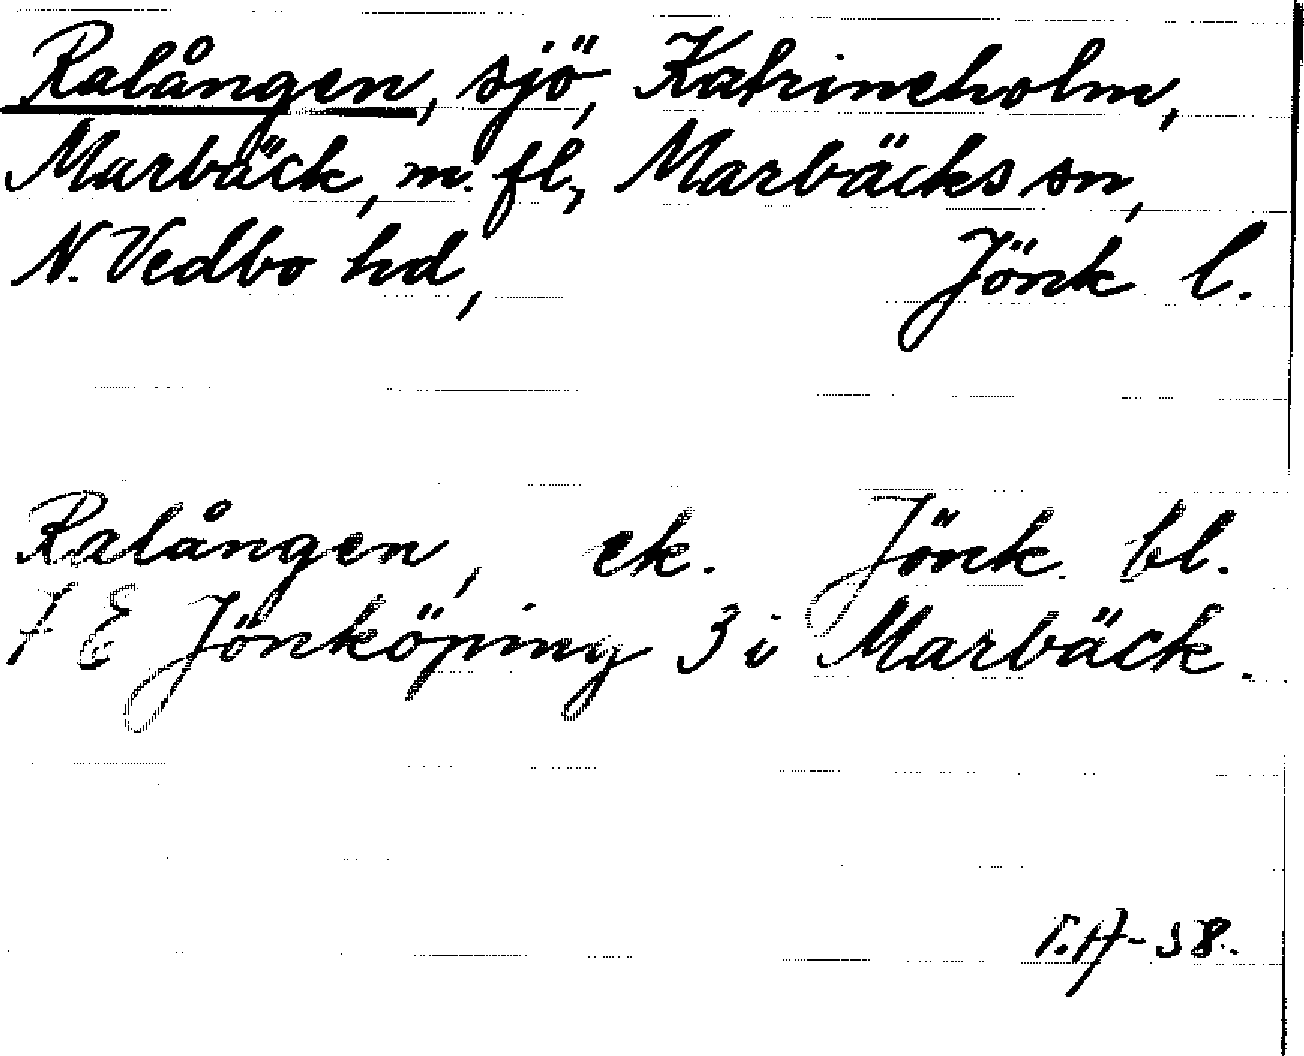 Ralången, sjö, Katrineholm,
Marbäck, m. fl., Marbäcks sn,
N. Vedbo hd, Jönk l.
Ralången, ek. Jönk. bl.
7 E Jönköping 3 i Marbäck.
T.A-58.